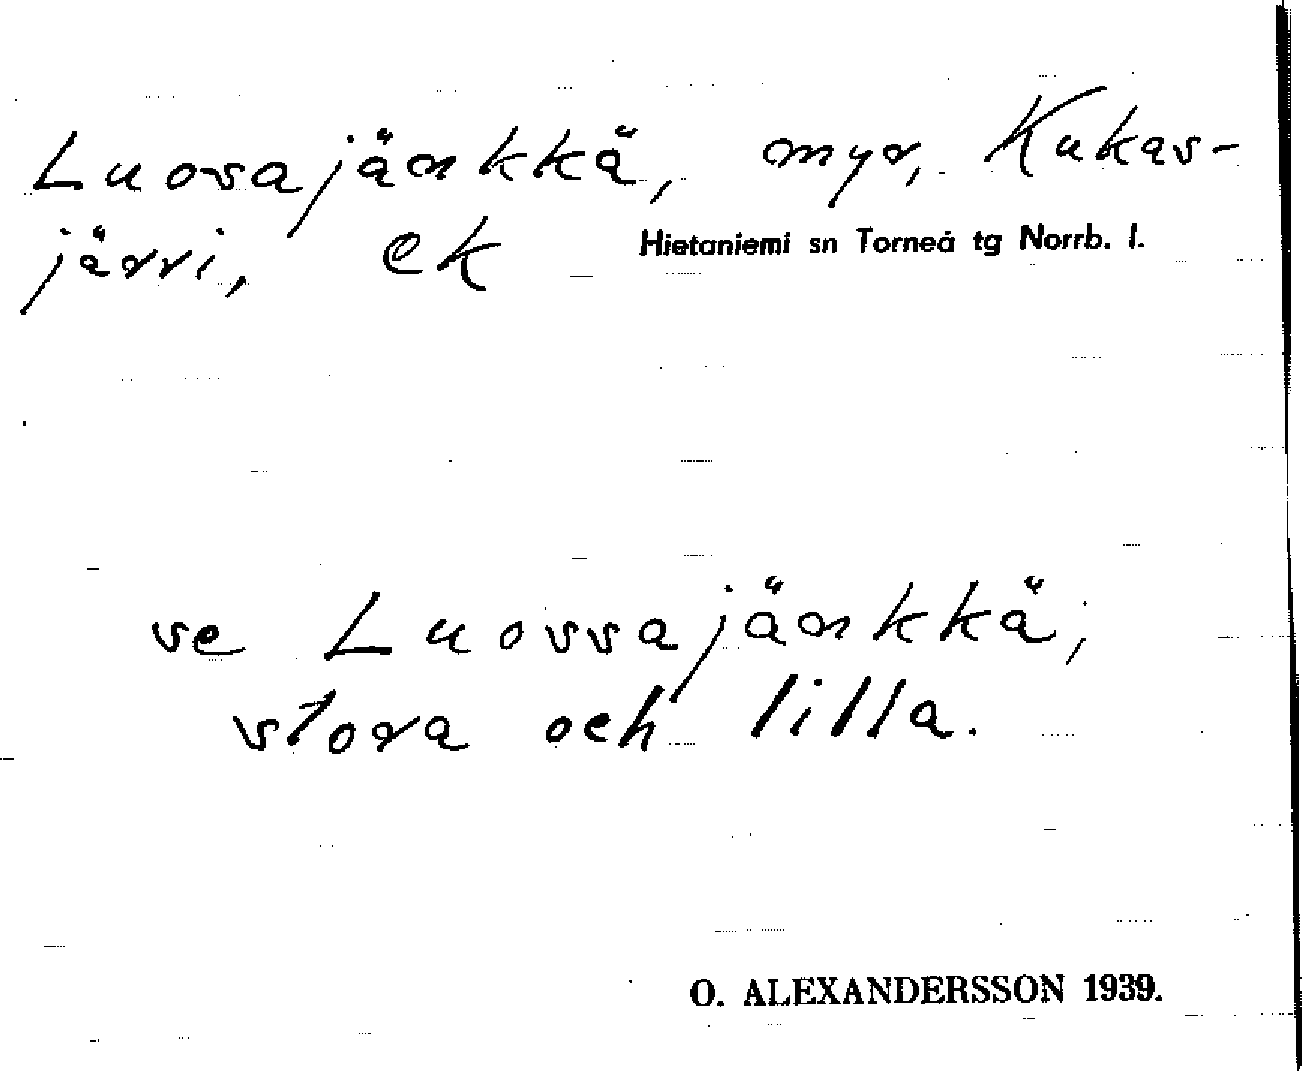 Luosajänkkä, myr, Kukas-
järvi, ek Hietaniemi sn Torneå tg Norrb. l.
se Luossajänkkä,
stora och lilla.
O. ALEXANDERSSON 1939.